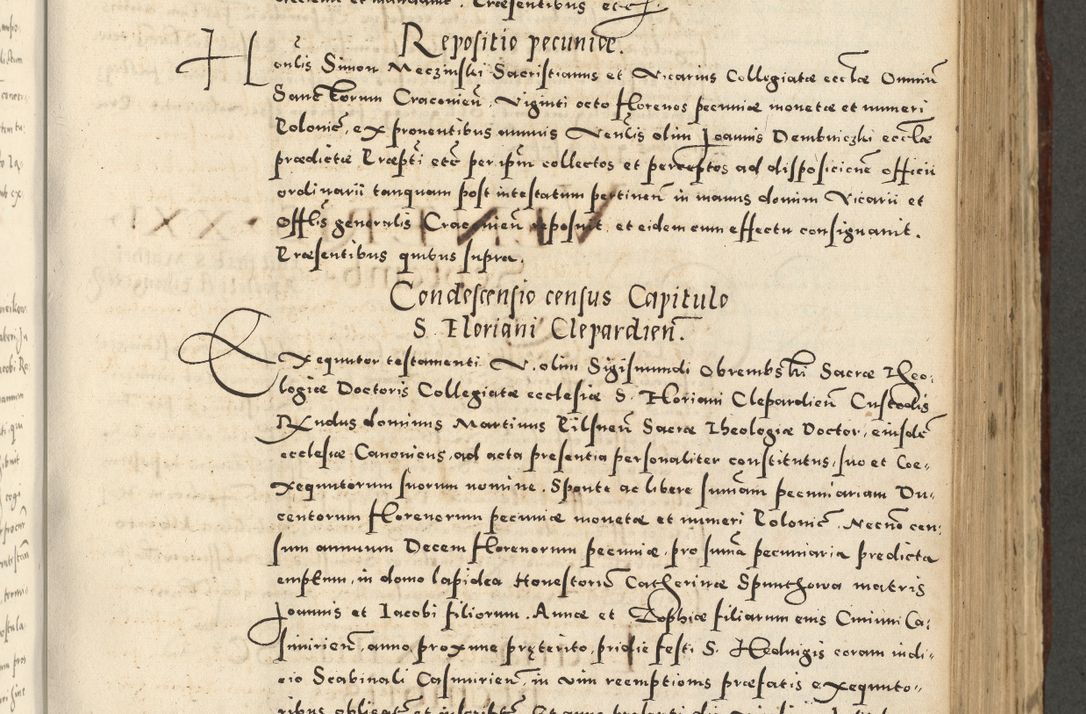 Repositio pecuniæ.
Honlis Simon Meczinski Sacristianus et Vicarius Collegiatæ ecclæ Omniũ
Sanctorum Cracovieñ, Viginti octo florenos pecuniæ monetæ et numeri
Polonic̃, ex proventibus annuis Venlis olim Joannis Dembniczki ecclæ
prædictæ Præpti etc per ipm̃ collectos et perceptos ad disposicionẽ officii
ordinarii tanquam post intestatum pertineñ in manus domini Vicarii et
Offlis generalis Cracovieñ reposuit, et eidem cum effectu consignavit.
Præsentibus quibus supra.
Condescensio census Capitulo
S. Floriani Clepardieñ.
Exequutor testamenti V. olim Sigismundi Obrembski Sacræ Theo:
logiæ Doctoris Collegiatæ ecclesiæ S. Floriani Clepardieñ Custodis
Rx̃ndus dominus Martinus Pilsneñ Sacræ Theologiæ Doctor, eiusdẽ
ecclesiæ Canonicus, ad acta presentia personaliter constitutus, suo et Coe:
xequutorum suorum nomine, Sponte ac libere sum̃am pecuniariam Du:
centorum florenorum pecuniæ monetæ et numeri Polonic̃, Necnõ cen:
sum annuum Decem florenorum pecuniæ, pro sum̃a pecuniaria predicta
emptum, in domo lapidea Honestorũ Catherinæ Spunthowa matris
Joannis et Iacobi filiorum, Annæ et Zophiæ filiarum eius Civium Ca:
simirieñ, anno proxime pręterito, pridie festi S. Hedvigis coram iudi:
cio Scabinali Casmirieñ, in vim reemptionis præfatis exequuto: